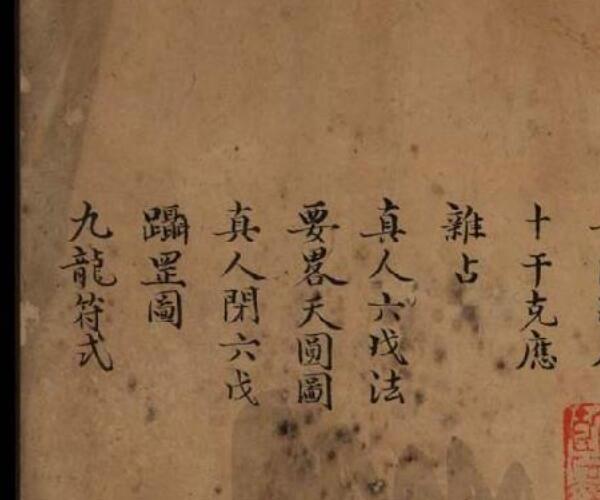 十干克應
雜占
真人六戊法
要畧天圓圖
真人閉六戊
躡罡圖
九龍符式